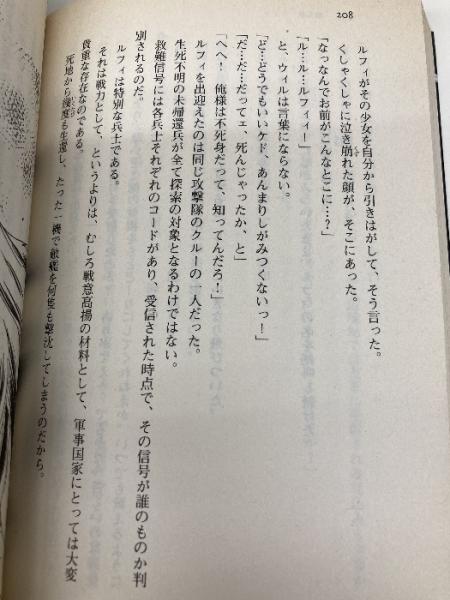 208
ルフィがその少女を自分から引きはがして、そう言った。
くしゃくしゃに泣き崩れた顔が、そこにあった。
「なっなんでお前がこんなとこに…？」
「ル…ル…ルフィィー！」
と、ウィルは言葉にならない。
「ど…どうでもいいケド、あんまりしがみつくないっ！」
「だ…だ…だってェ、死んじゃったか、と」
「へへ！　俺様は不死身だって、知ってんだろ！」
ルフィを出迎えたのは同じ攻撃隊のクルーの一人だった。
生死不明の未帰還兵が全て探索の対象となるわけではない。
救難信号には各兵士それぞれのコードがあり、受信された時点で、その信号が誰のものか判
別されるのだ。
ルフィは特別な兵士である。
それは戦力として、というよりは、むしろ戦意高揚の材料として、軍事国家にとっては大変
貴重な存在なのである。
死地から幾度も生還し、たった一機で敵艦を何隻も撃沈してしまうのだから。